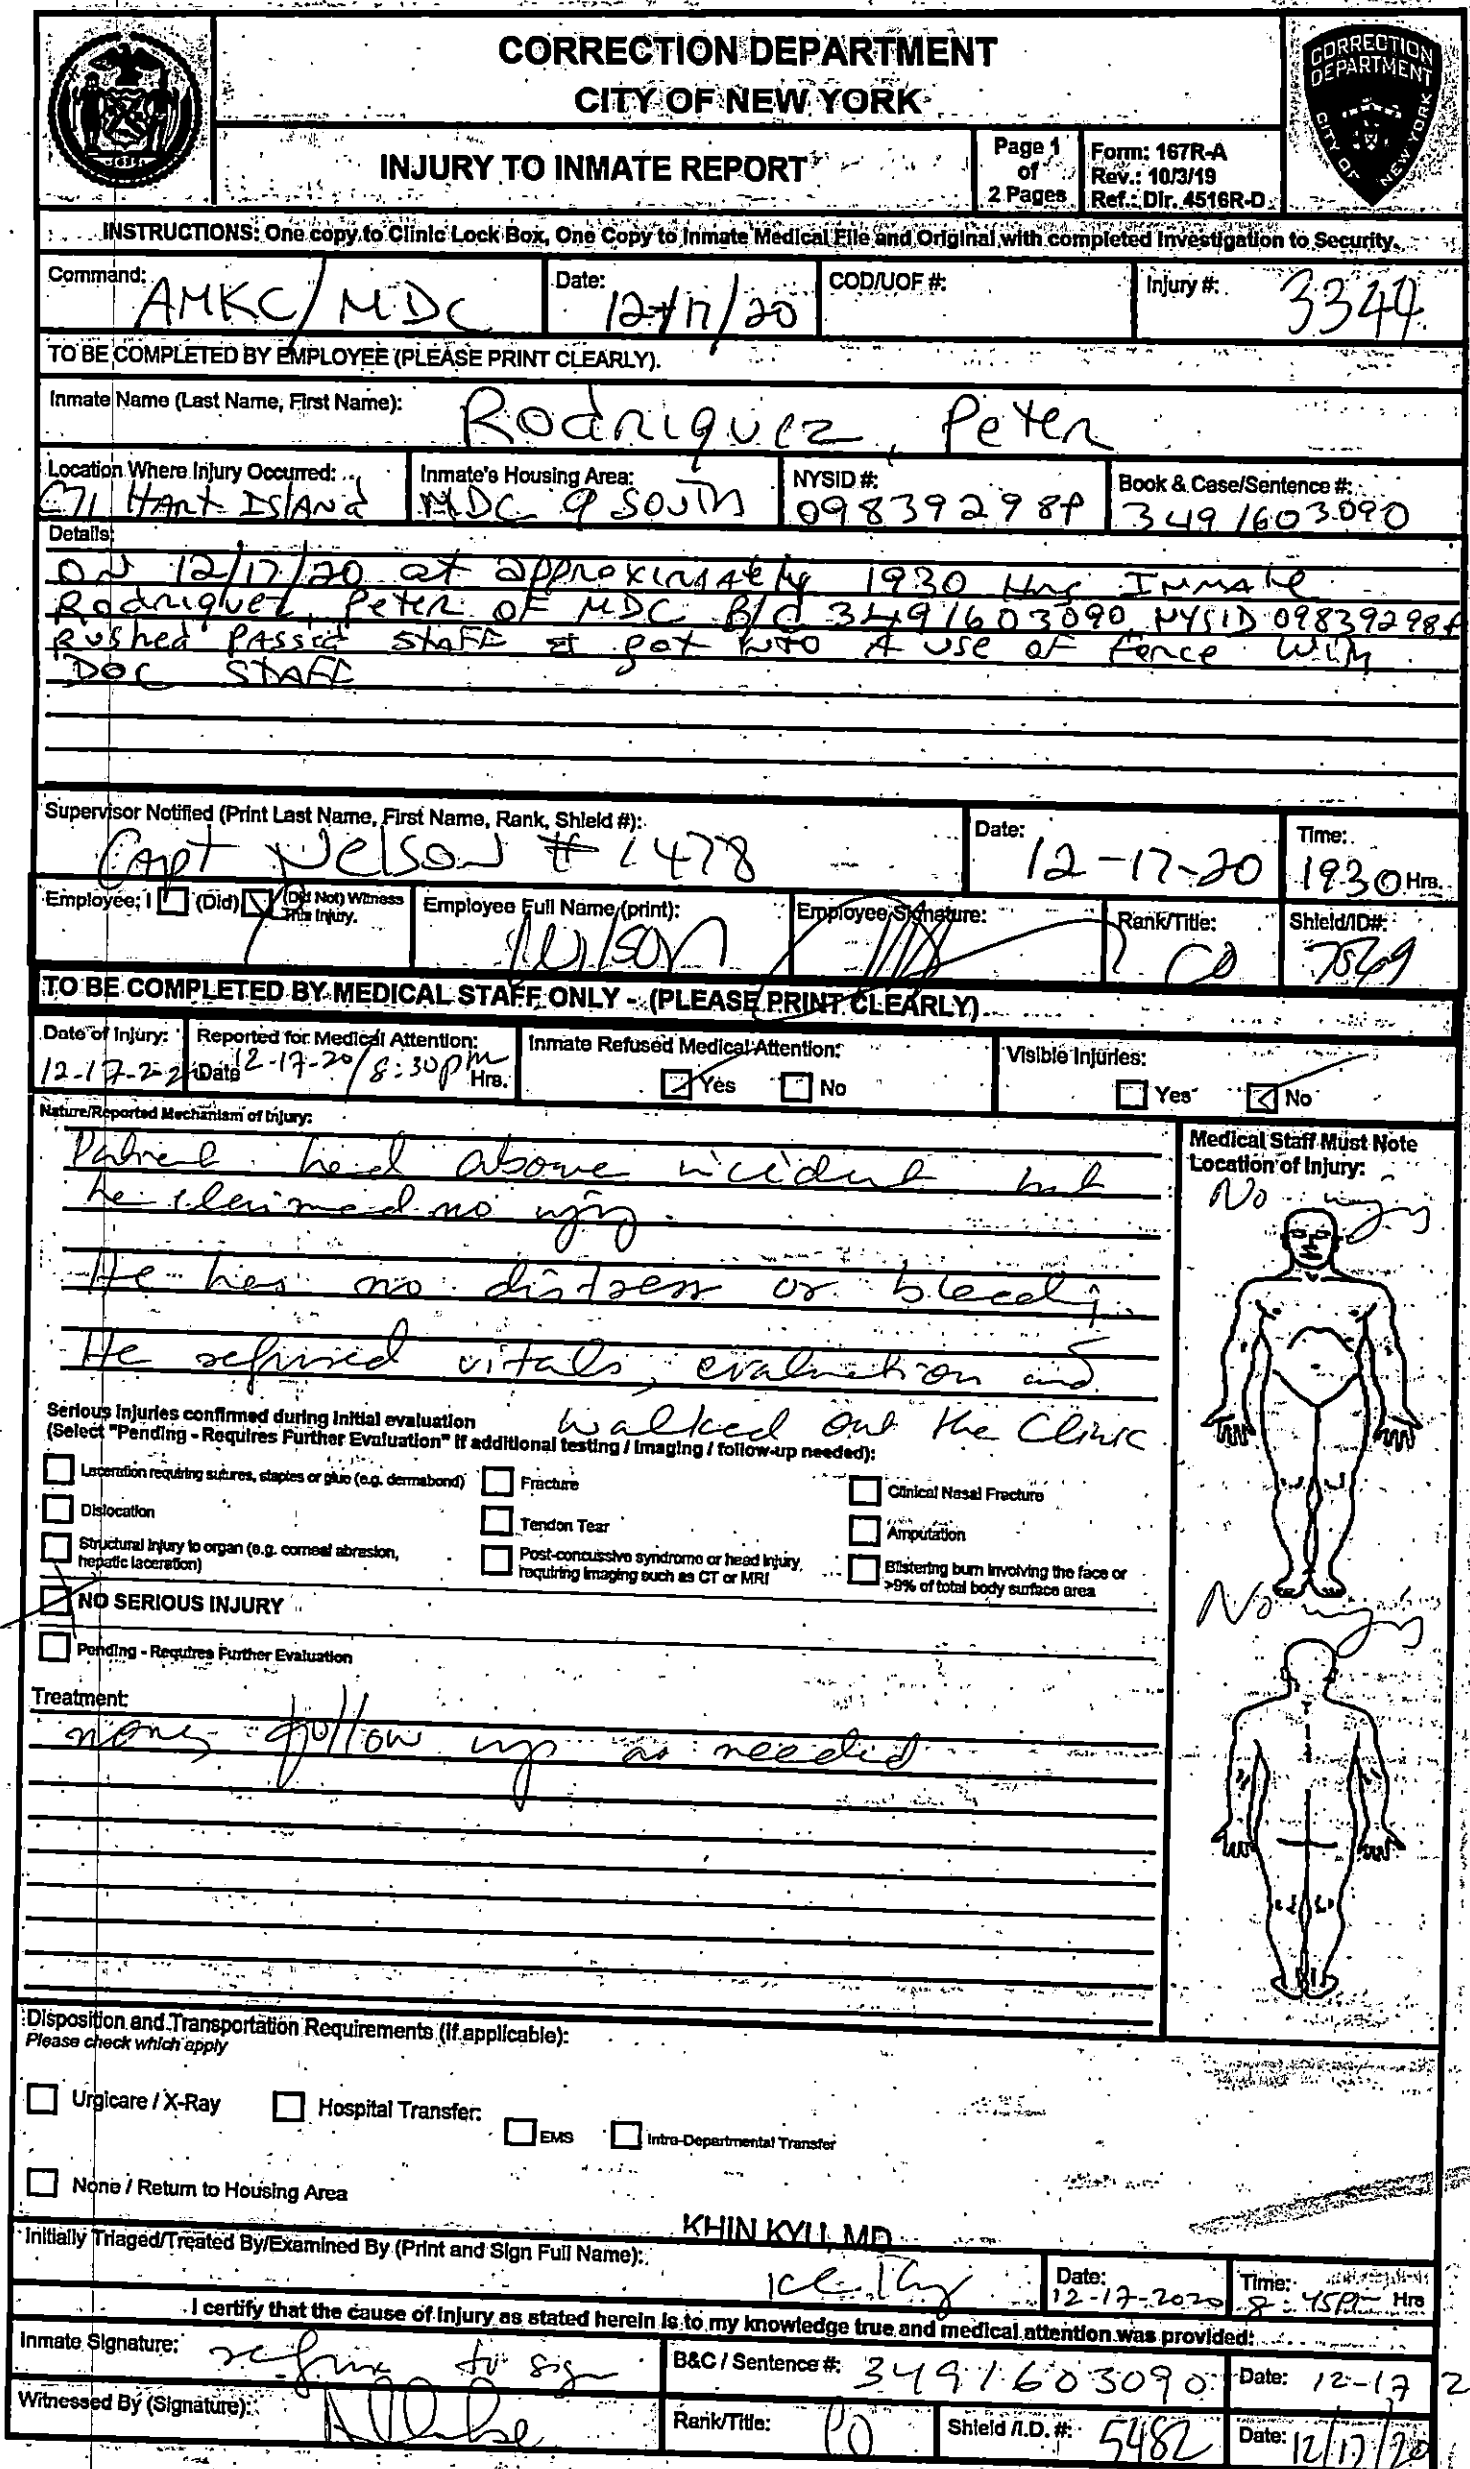 CORRECTION DEPARTMENT
CITY OF NEW YORK
CORRECTION
DEPARTMENT
CITY OF NEW YORK
INJURY TO INMATE REPORT
Page 1
of
2 Pages
Form: 167R-A
Rev.: 10/3/19
Ref.: Dir. 4516R-D
INSTRUCTIONS: One copy to Clinic Lock Box, One Copy to Inmate Medical File and Original with completed Investigation to Security.
Command: AMKC/MDC Date: 12/17/20 COD/UOF #: Injury #: 3344
TO BE COMPLETED BY EMPLOYEE (PLEASE PRINT CLEARLY).
Inmate Name (Last Name, First Name): Rodriquez, Peter
Location Where Injury Occurred: Inmate's Housing Area: NYSID #: Book & Case/Sentence #:
C71 Hart Island MDC 9 South 09839298P 3491603090
Details:
ON 12/17/20 at approximately 1930 Hrs Inmate
Rodriquez, Peter of MDC B/C 3491603090, NYSID 09839298P
Rushed Passed Staff & got into A use of force with
DOC STAFF
Supervisor Notified (Print Last Name, First Name, Rank, Shield #): Date: Time:
Capt Nelson # 1478 12-17-20 1930 Hrs.
Employee; I (Did) (Did Not) Witness This Injury. Employee Full Name (print): Employee Signature: Rank/Title: Shield/ID#:
Wilson CO 7549
TO BE COMPLETED BY MEDICAL STAFF ONLY - (PLEASE PRINT CLEARLY)
Date of Injury: Reported for Medical Attention: Inmate Refused Medical Attention: Visible Injuries:
Date 12-17-20 / 8:30pm Hrs. Yes No Yes No
Nature/Reported Mechanism of Injury:
Patient had above incident but
he claimed no injury.
He has no distress or bleeding.
He refused vitals, evaluation and
walked out the Clinic
Medical Staff Must Note
Location of Injury:
No injury
Serious injuries confirmed during initial evaluation
(Select "Pending - Requires Further Evaluation" if additional testing / imaging / follow-up needed):
Laceration requiring sutures, staples or glue (e.g. dermabond) Fracture Clinical Nasal Fracture
Dislocation Tendon Tear Amputation
Structural injury to organ (e.g. corneal abrasion, hepatic laceration) Post-concussive syndrome or head injury, requiring imaging such as CT or MRI Blistering burn involving the face or >9% of total body surface area
NO SERIOUS INJURY
No injury
Pending - Requires Further Evaluation
Treatment:
none, follow up as needed
Disposition and Transportation Requirements (if applicable):
Please check which apply
Urgicare / X-Ray Hospital Transfer: EMS Intra-Departmental Transfer
None / Return to Housing Area
KHIN KYU, MD
Initially Triaged/Treated By/Examined By (Print and Sign Full Name): Date: 12-17-2020 Time: 8:45pm Hrs
I certify that the cause of injury as stated herein is to my knowledge true and medical attention was provided:
Inmate Signature: refuse to sign B&C / Sentence #: 3491603090 Date: 12-17 2
Witnessed By (Signature): Rank/Title: CO Shield /I.D. #: 5482 Date: 12/17/20